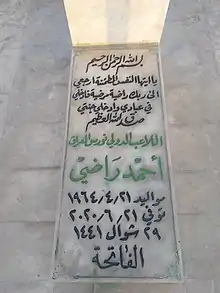 بسم الله الرحمن الرحيم
يا ايتها النفس المطمئنة ارجعي
الى ربك راضية مرضية فادخلي
في عبادي وادخلي جنتي
صدق الله العظيم
اللاعب الدولي فورس العراق
أحمد راضي
مواليد ٢١ / ٤ / ١٩٦٤
توفي ٢١ / ٦ / ٢٠٢٠
٢٩ شوال ١٤٤١
الفاتحة